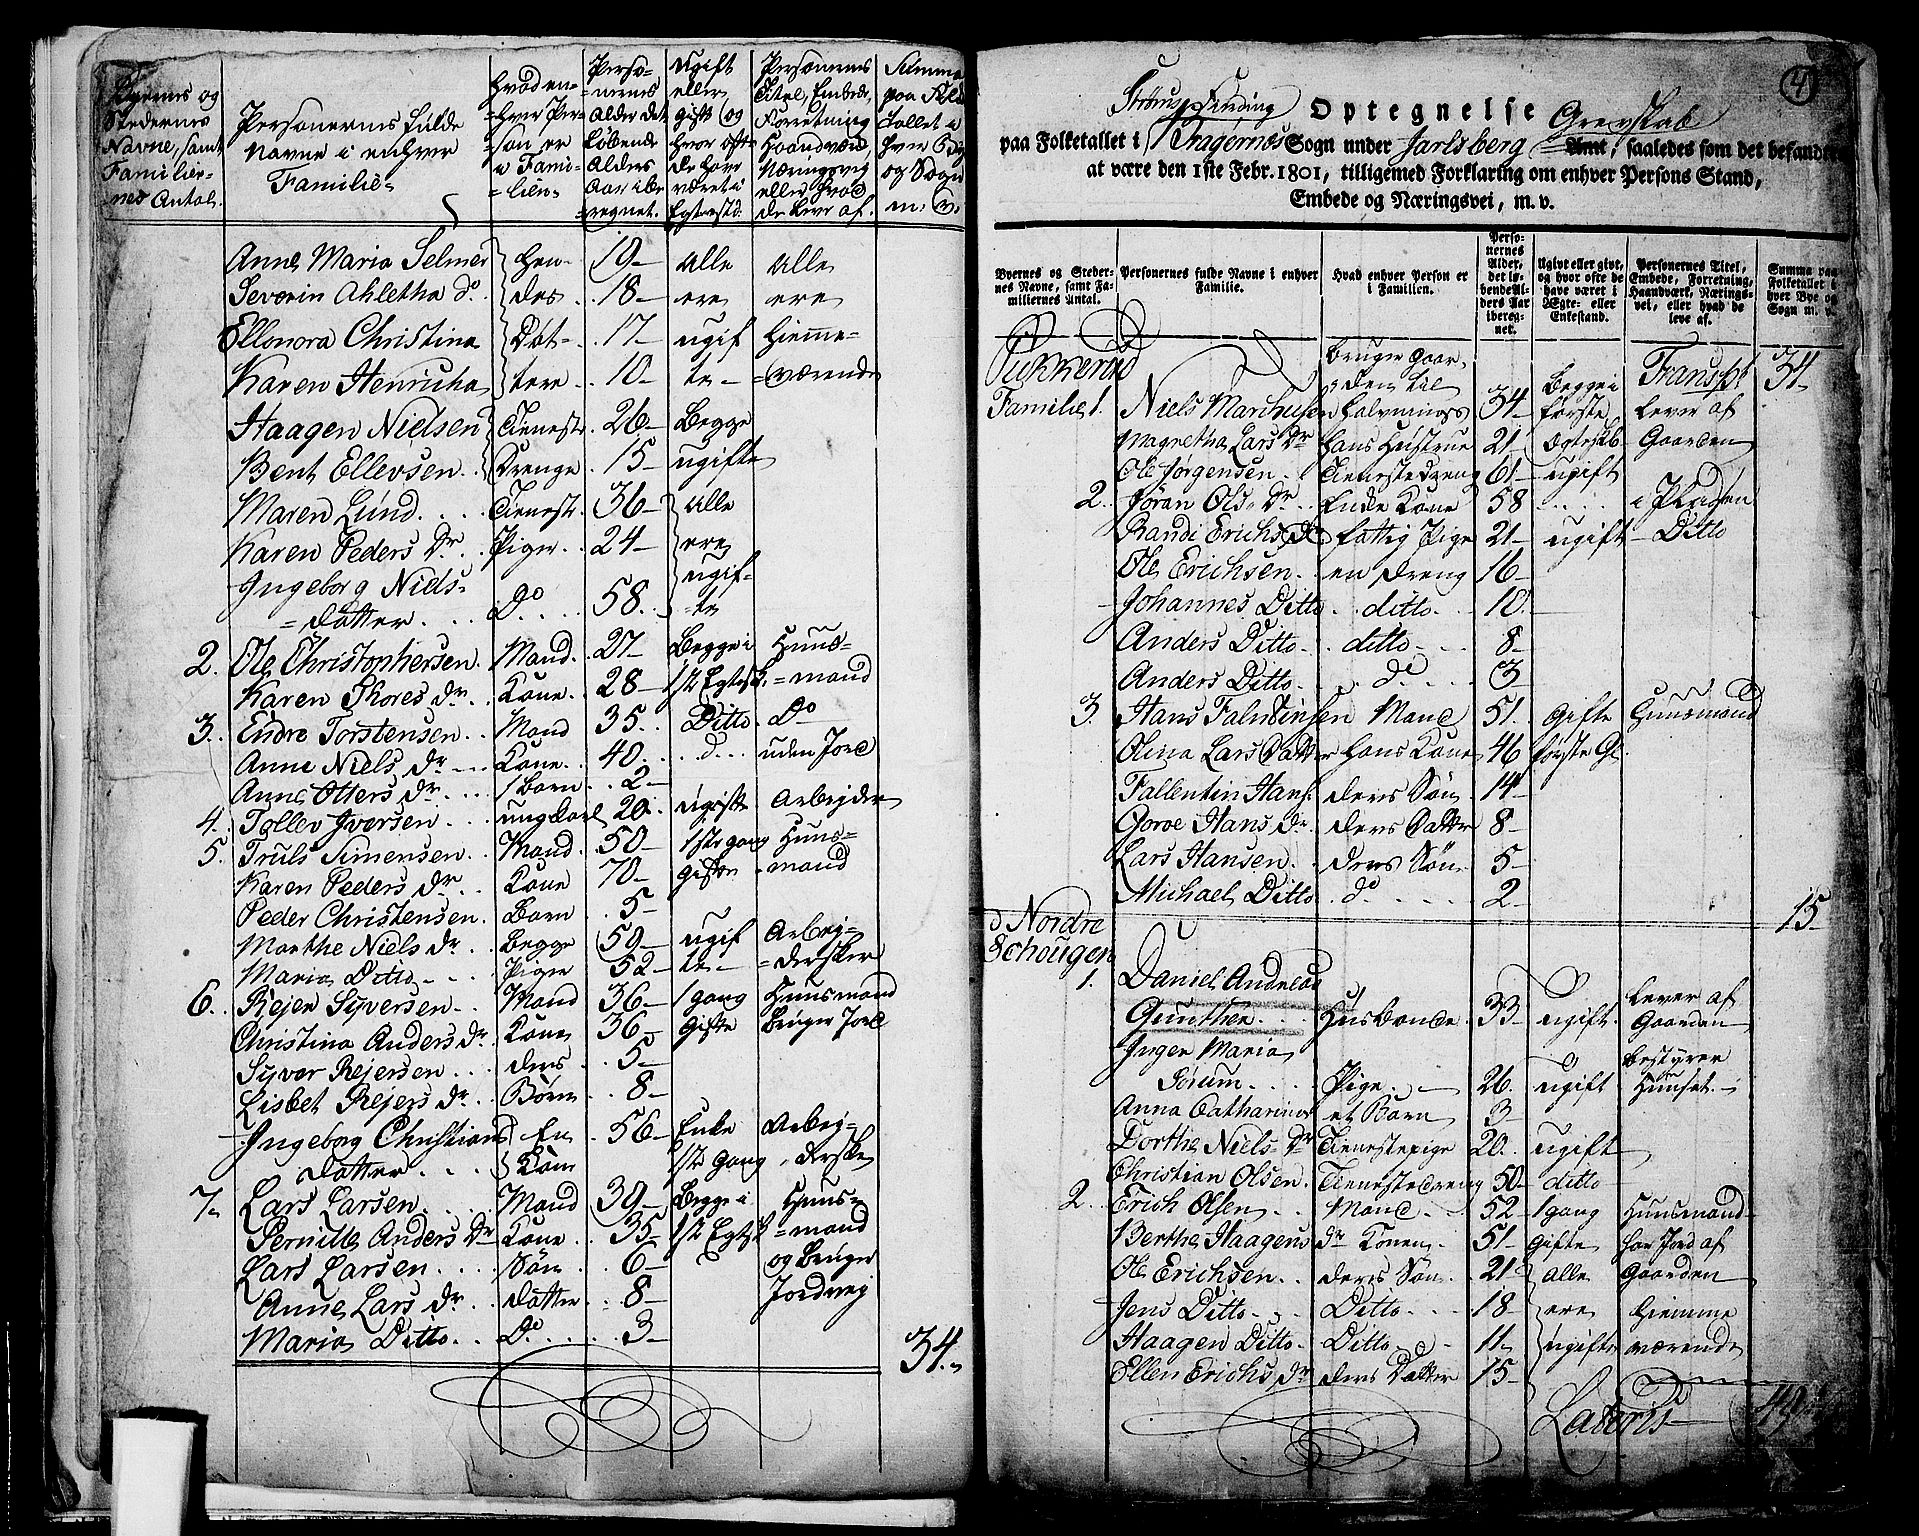 Byernes og Stedernes Navne, samt Familiernes Antal.
Personernes fulde Navne i enhver Familie.
Hvad enhver Person er i Familien.
Personernes Alder det løbende Alders Aar iberegnet.
Ugift eller gift, og hvor ofte de have været i Egtestd.
Personernes Titel, Embede, Forretning, Haandværk, Næringsvej eller hvad de leve af.
Summa paa Folketallet i hver By og Sogn m. v.
Anne Maria Selmer hen- 19 alle alle
Severin Ahletha do. des 18 ere ere
Ellonora Christina Døt- 17 ugif hieme-
Karen Henricha tere 10 te værende
Haagen Nielsen Tieneste 26 Begge
Bent Ellevsen Drenge 15 ugifte
Maren Lund Tienest. 36 alle
Karen Peders Dr Piger 24 ere
Ingeborg Niels- ugif-
datter Do 58 te
2. Ole Christophersen Mand 27 Begge i Huus-
Karen Thores dr Kone 28 1ste Egtesk. mand
3. Endre Torstensen Mand 35 Ditto Do
Anne Niels dr Kone 40 d uden Jord
Anne Otters dr Barn 2
4. Tollev Iversen ungkarl 20 ugifte Arbejder
5. Truls Simensen Mand 50 1ste gang Huus-
Karen Peders dr Kone 70 gifte mand
Peder Christensen Barn 5
Marthe Niels dr Begge 59 ugif Arbej-
Maria Ditto Piger 52 te dersker
6. Rejer Syversen Mand 36 1 gang Huusmand
Christina Anders dr Kone 36 gifte bruger Jord
Syver Rejersen deres 5
Lisbet Rejers dr Børn 8
Ingeborg Christians En 56 Enke Arbej-
datter Kone 1ste gang derske
7. Lars Larsen Mand 39 Begge i Huus-
Pernille Anders Dr Kone 35 1ste Egtsk mand
Lars Larsen Søn 6 og bruger
Anne Lars dr datter 8 Jordvej
Maria Ditto Do 3
34.
4
Strøms Fierding Optegnelse Grevskab
paa Folketallet i Bragernæs Sogn under Jarlsberg Amt, saaledes som det befandtes
at være den 1ste Febr. 1801, tilligemed Forklaring om enhver Persons Stand,
Embede og Næringsvei, m. v.
Byernes og Stedernes Navne, samt Familiernes Antal.
Personernes fulde Navne i enhver Familie.
Hvad enhver Person er i Familien.
Personernes Alder, det løbende Alders Aar iberegnet.
Ugivt eller givt, og hvor ofte de have været i Ægte- eller Enkestand.
Personernes Titel, Embede, Forretning, Haandværk, Næringsvei, eller hvad de leve af.
Summa paa Folketallet i hver Bye og Sogn m. v.
Pukkerud bruger Gaar- Transpt 34
Familie 1. Niels Marchusen den til Halvnings 34 begge i første lever af
Magnetha Lars Dr hans Hustrue 21 Egteskb Gaarden
Ole Jørgensen Tienestedreng 61 ugift
2. Jøran Ols Dr Enke Kone 58 i Pladsen
Randi Erichs Dr fattig Pige 21 ugift Ditto
Ole Erichsen en dreng 16
Johannes Ditto ditto 10
Anders Ditto ditto 8
Anders Ditto do 3
3. Hans Falentinsen Mand 51 Gifte Huusmand
Olina Lars Datter hans Kone 46 første G.
Fallentin Hans. deres Søn 14
Gorve Hans dr deres Datter 8
Lars Hansen deres Søn 5
Michael Ditto do 2
15
Nordre
Schougen
1. Daniel Andreas
Gunther Husbonde 33 ugift lever af Gaarden
Inger Maria bestyrer
Sørum Pige 26 ugift Huuset
Anna Catharina et Barn 3
Dorthe Niels Dr Tienestepige 20 ugift
Christian Olsen Tienestedreng 50 ditto
2. Erich Olsen Mand 52 1 gang Huusmand
Berthe Haagens dr Konen 51 gifte har Jord af
Ole Erichsen deres Søn 21 alle Gaarden
Jens Ditto Ditto 18 ere hiemme
Haagen Ditto Ditto 11 ugifte værende
Ellen Erichs dr deres Datter 15
Lateris 49